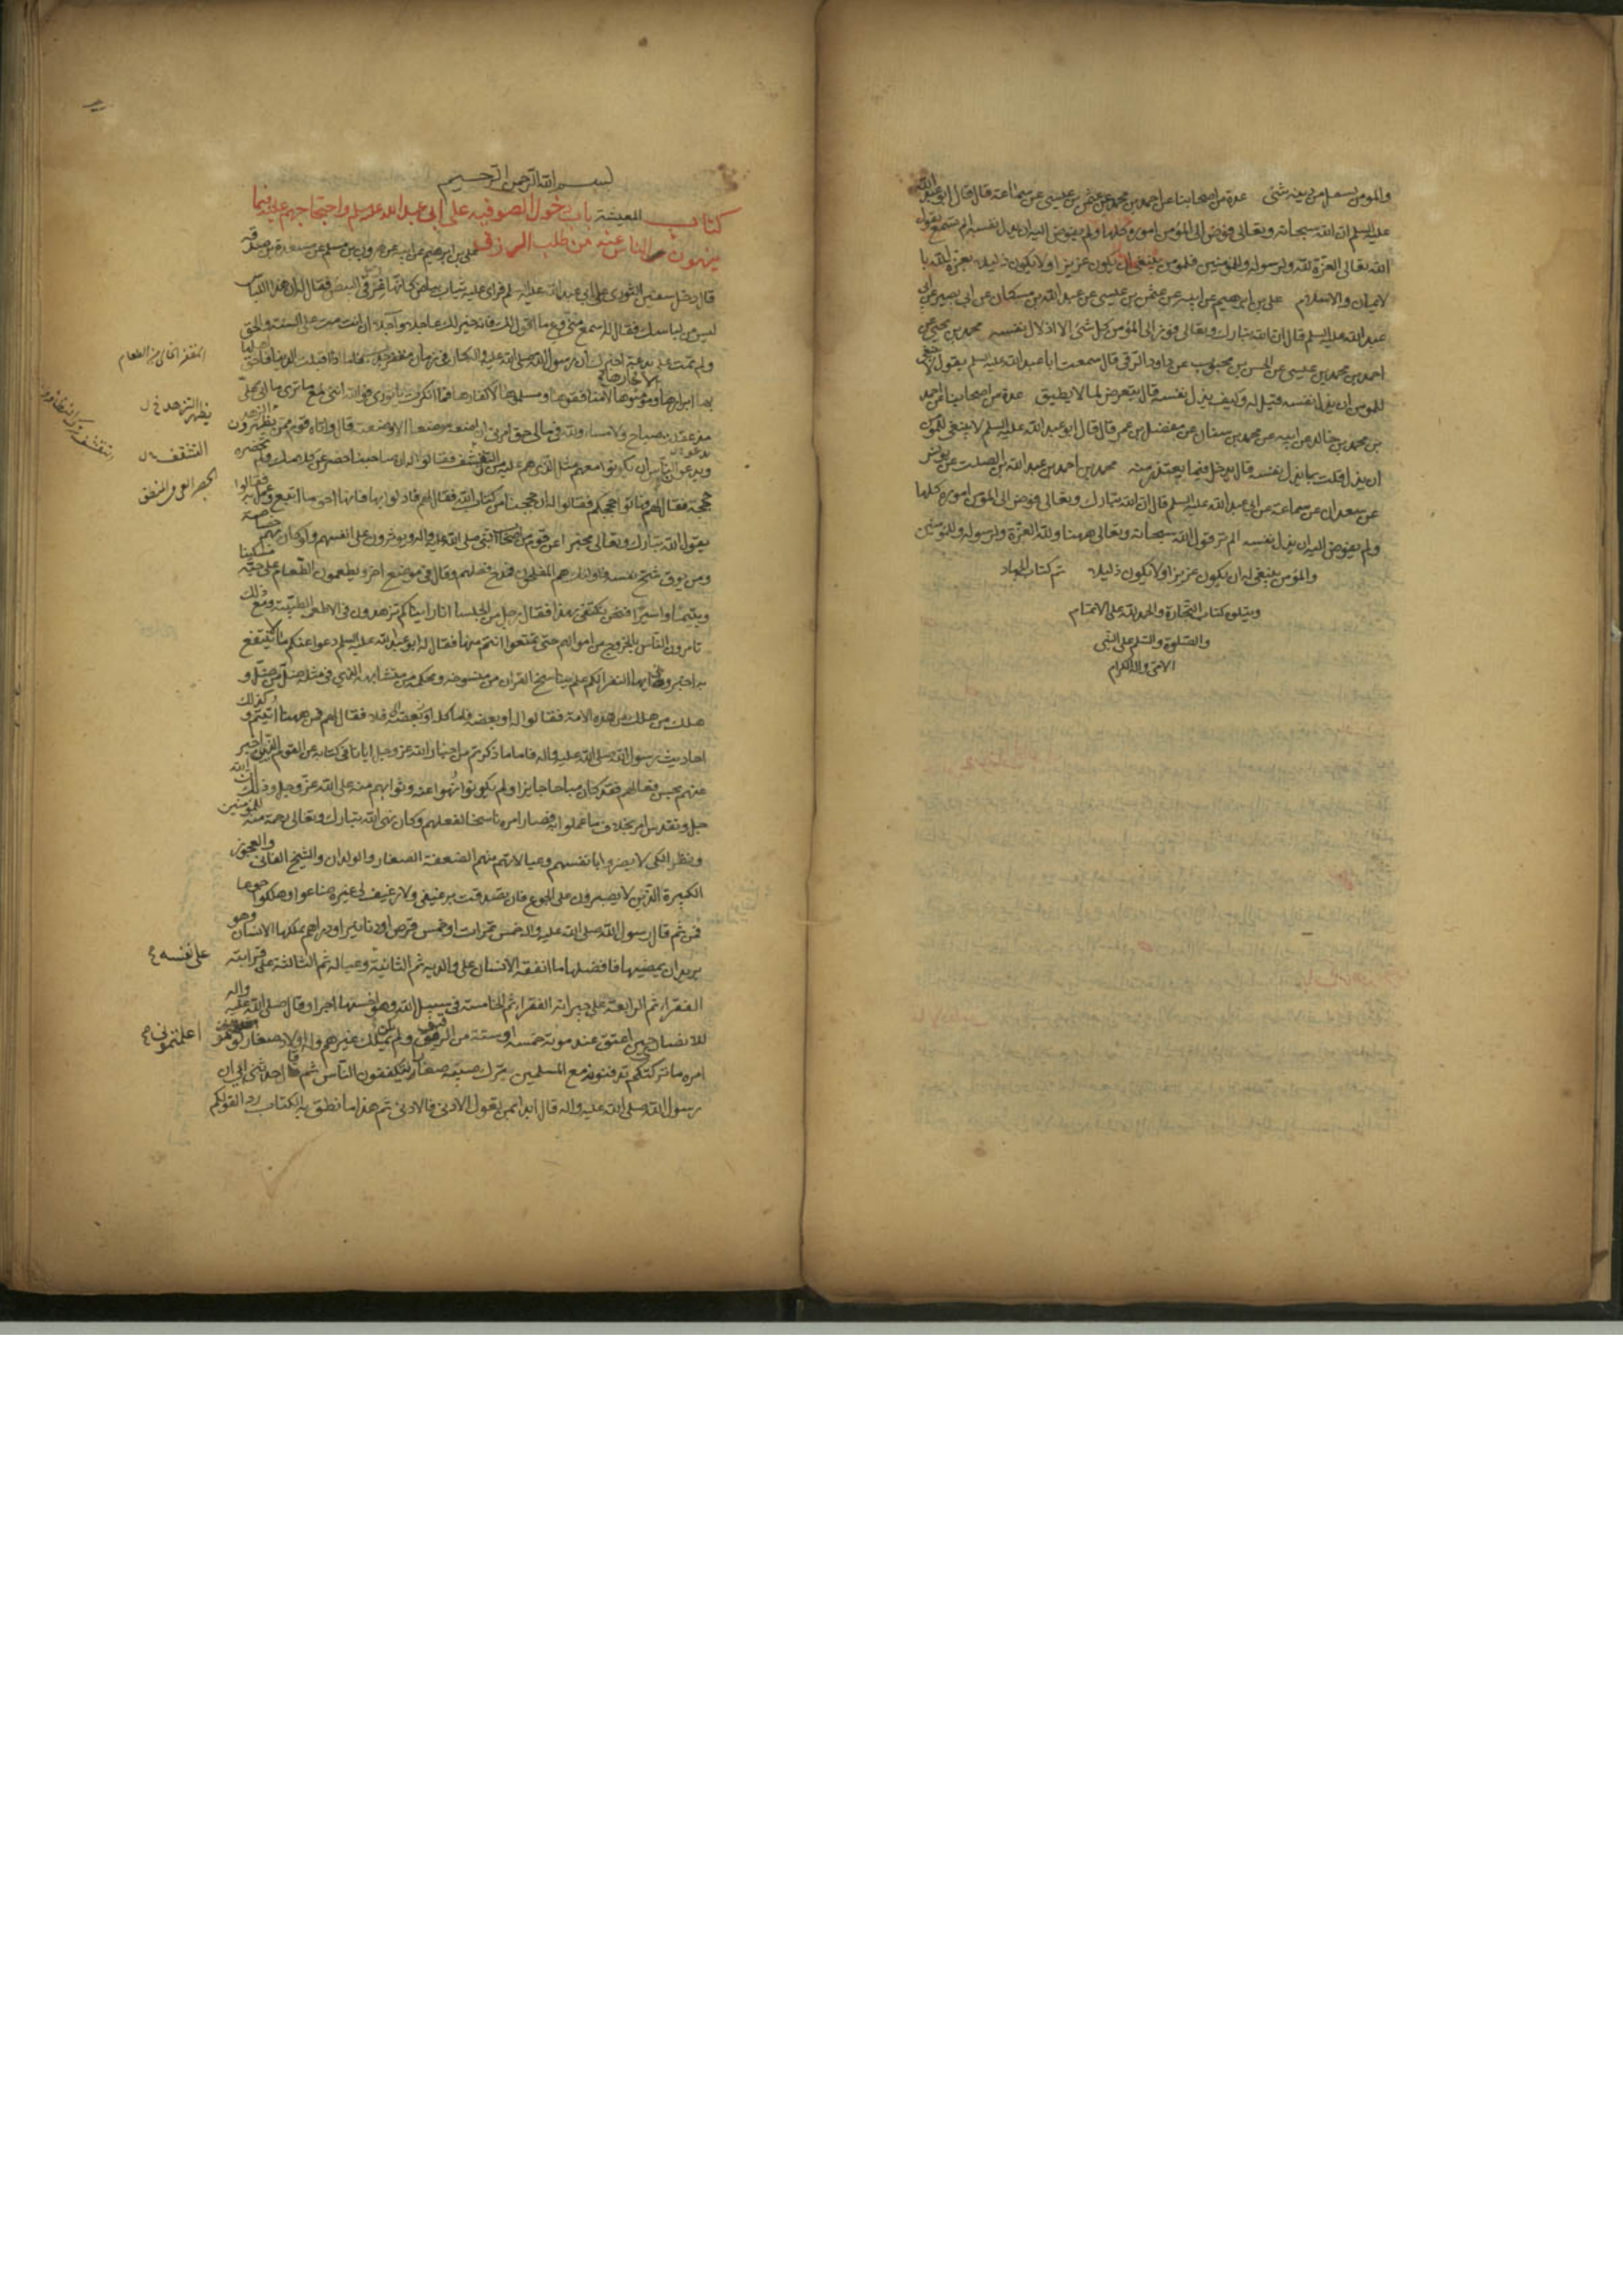 والمؤمن لا يستقل من دينه شئ عدة من اصحابنا عن احمد بن محمد عن عثمن بن عيسى عن سماعة قال قال ابو عبد الله
عليه السلم ان الله سبحانه وتعالى فوض الى المؤمن اموره كلها ولم يفوض اليه ان يذل نفسه الم تسمع لقول
الله تعالى العزة لله ولرسوله وللمؤمنين فالمؤمن ينبغي ان يكون عزيزا ولا يكون ذليلا يعزه الله با
لايمان والاسلام علي بن ابرهيم عن ابيه عن عثمن بن عيسى عن عبد الله بن مسكان عن ابي بصير عن ابي
عبد الله عليه السلم قال ان الله تبارك وتعالى فوض الى المؤمن كل شئ الا اذلال نفسه محمد بن يحيى عن
احمد بن محمد بن عيسى عن الحسن بن محبوب عن داود الرقي قال سمعت ابا عبد الله عليه السلم يقول لا ينبغي
للمؤمن ان يذل نفسه قيل له وكيف يذل نفسه قال يتعرض لما لا يطيق عدة من اصحابنا عن احمد
بن محمد بن خالد عن ابيه عن محمد بن سنان عن مفضل بن عمر قال قال ابو عبد الله عليه السلم لا ينبغي للمؤمن
ان يذل نفسه قلت بما يذل نفسه قال يدخل فيما يعتذر منه محمد بن احمد عن عبد الله بن الصلت عن يونس
عن سعدان عن سماعة عن ابي عبد الله عليه السلم قال ان الله تبارك وتعالى فوض الى المؤمن اموره كلها
ولم يفوض اليه ان يذل نفسه الم تر قول الله سبحانه وتعالى ههنا ولله العزة ولرسوله وللمؤمنين
والمؤمن ينبغي له ان يكون عزيزا ولا يكون ذليلا تم كتاب الجهاد
ويتلوه كتاب التجارة والحمد لله على الاتمام
والصلوة والسلم على النبي
الامي واله الكرام
بسم الله الرحمن الرحيم
كتاب المعيشة باب دخول الصوفية على ابي عبد الله عليه السلم واحتجاجهم عليه فيما
ينهون الناس عنه من طلب الرزق علي بن ابرهيم عن ابيه عن هرون بن مسلم عن مسعدة بن صدقة
قال دخل سفين الثوري على ابي عبد الله عليه السلم فراى عليه ثياب بياض كانها غرقئ البيض فقال له ان هذا اللباس
ليس من لباسك فقال له اسمع مني وع ما اقول لك فانه خير لك عاجلا وآجلا ان انت مت على السنة والحق
ولم تمت على بدعة اخبرك ان رسول الله صلى الله عليه واله كان في زمان مقفر جدب فاما اذا اقبلت الدنيا فاحق اهلها
بها ابرارها لا فجارها ومؤمنوها لا منافقوها ومسلموها لا كفارها فما انكرت يا ثوري فوالله انني لمع ما ترى ما اتى علي
مذ عقلت صباح ولا مساء ولله في مالي حق امرني ان اضعه موضعا الا وضعته قال واتاه قوم ممن يظهرون الزهد
ويدعون الناس ان يكونوا معهم مثل الذي هم عليه من التقشف فقالوا له ان صاحبنا حصر عن كلامك ولم تحضره
حججه فقال لهم فهاتوا حججكم فقالوا له ان حججنا من كتاب الله فقال لهم فادلوا بها فانها احق ما اتبع وعمل به فقالوا
يقول الله تبارك وتعالى مخبرا عن قوم من اصحاب النبي صلى الله عليه واله ويؤثرون على انفسهم ولو كان بهم خصاصة
ومن يوق شح نفسه فاولئك هم المفلحون فمدح فعلهم وقال في موضع اخر ويطعمون الطعام على حبه مسكينا
ويتيما واسيرا فنحن نكتفي بهذا فقال رجل من الجلساء انا رايناكم تزهدون في الاطعمة الطيبة ومع ذلك
تامرون الناس بالخروج من اموالهم حتى تمتعوا انتم منها فقال له ابو عبد الله عليه السلم دعوا عنكم ما لا ينتفع
به اخبروني ايها النفر الكم علم بناسخ القران من منسوخه ومحكمه من متشابهه الذي في مثله ضل من ضل و
هلك من هلك من هذه الامة فقالوا له او بعضه فاما كله فلا فقال لهم فمن ههنا اتيتم وكذلك
احاديث رسول الله صلى الله عليه واله فاما ما ذكرتم من اخبار الله عز وجل ايانا في كتابه عن القوم الذين اخبر
عنهم بحسن فعالهم فقد كان مباحا جايزا ولم يكونوا نهوا عنه وثوابهم منه على الله عز وجل وذلك ان الله
جل وتقدس امر بخلاف ما عملوا به فصار امره ناسخا لفعلهم وكان نهى الله تبارك وتعالى رحمة منه للمؤمنين
ونظرا لكي لا يضروا بانفسهم وعيالاتهم منهم الضعفة الصغار والولدان والشيخ الفاني والعجوز
الكبيرة الذين لا يصبرون على الجوع فان تصدقت برغيفي ولا رغيف لي غيره ضاعوا وهلكوا جوعا
فمن ثم قال رسول الله صلى الله عليه واله خمس تمرات او خمس قرص او دنانير او دراهم يملكها الانسان وهو
يريد ان يمضيها فافضلها ما انفقه الانسان على والديه ثم الثانية وعياله ثم الثالثة على قرابته
الفقراء ثم الرابعة على جيرانه الفقراء ثم الخامسة في سبيل الله وهو اخسها اجرا وقال صلى الله عليه واله
للانصاري حين اعتق عند موته خمسة او ستة من الرقيق ولم يكن يملك غيرهم وله اولاد صغار لو
امره ما تركتكم تدفنونه مع المسلمين يترك صبية صغارا يتكففون الناس ثم قال حدثني ابي ان
رسول الله صلى الله عليه واله قال ابدا بمن تعول الادنى فالادنى ثم هذا ما نطق به الكتاب رد القولكم
المقفر الخالي من الطعام
يظهر التزهد خ ل
التقشف
الحصر العي في المنطق
على نفسه
اعلمتموني